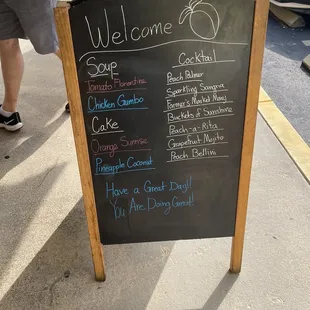 Welcome
Soup
Tomato Florentine
Chicken Gumbo
Cake
Orange Sunrise
Pineapple Coconut
Cocktail
Peach Palmer
Sparkling Sangria
Farmer's Market Mary
Buckets of Sunshine
Peach-a-Rita
Grapefruit Mojito
Peach Bellini
Have a Great Day!!
You Are Doing Great!